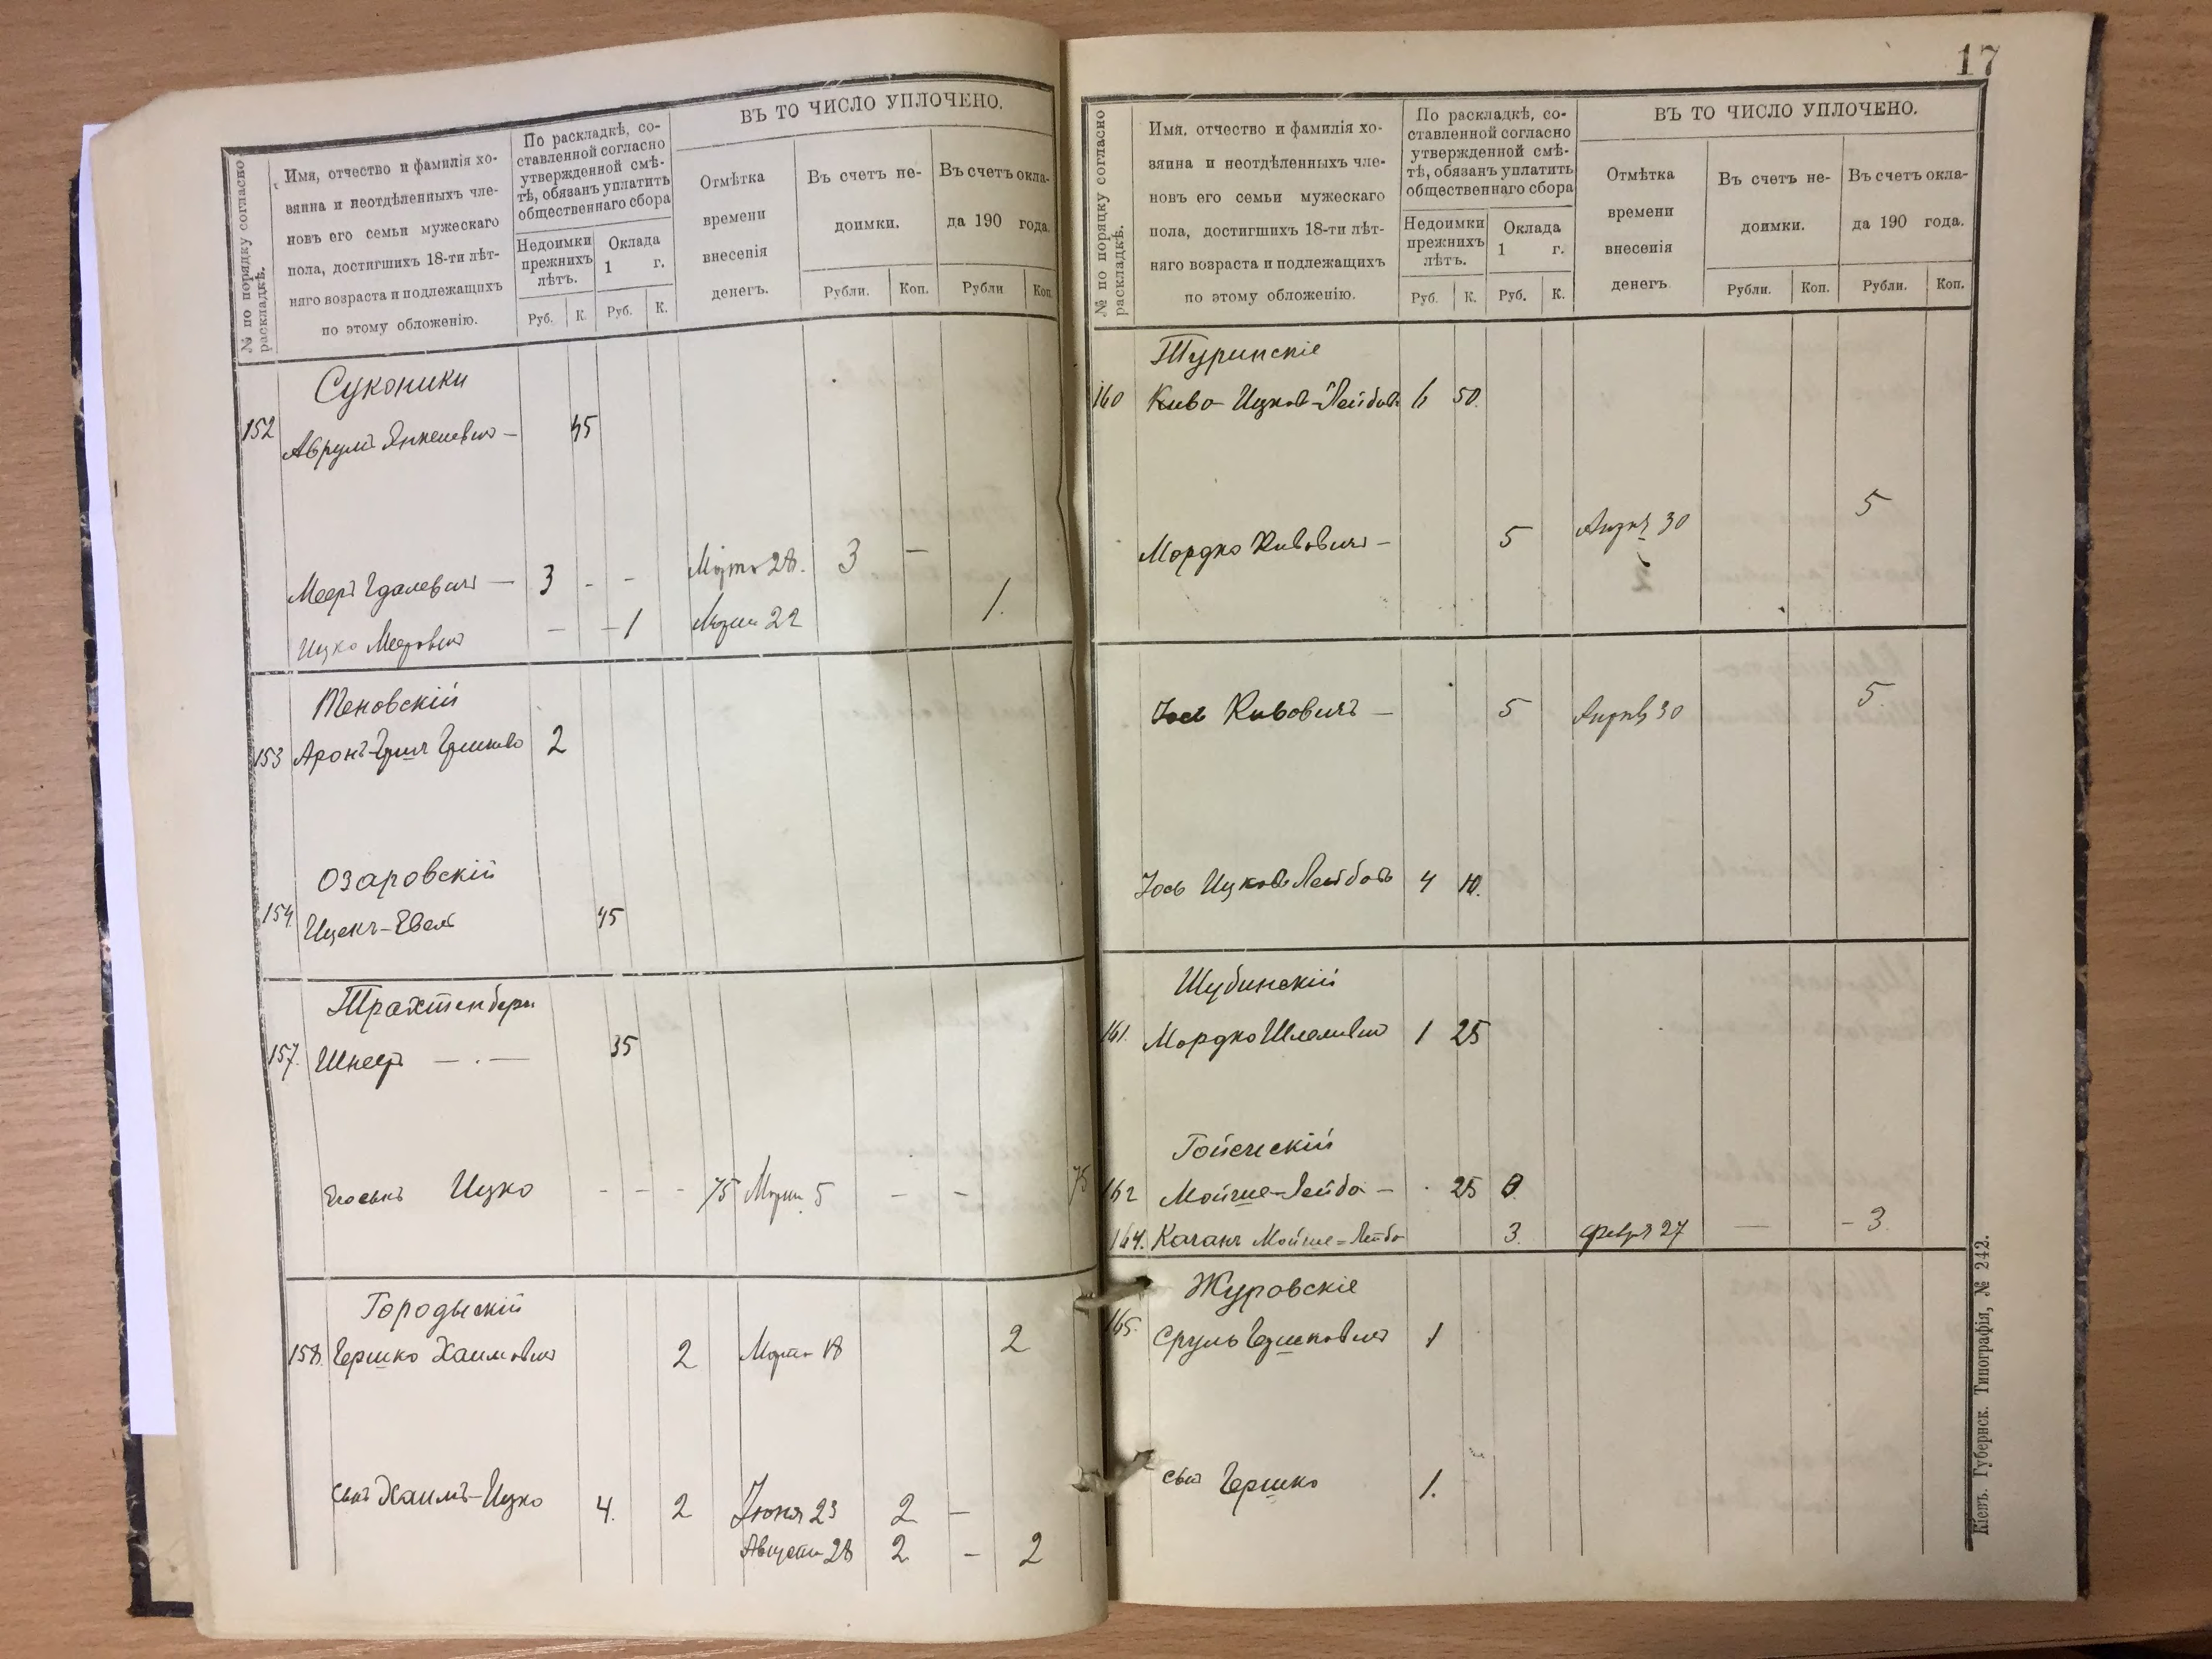 № по порядку согласно раскладкѣ.
Имя, отчество и фамилія хо-
зяина и неотдѣленныхъ чле-
новъ его семьи мужескаго
пола, достигшихъ 18-ти лѣт-
няго возраста и подлежащихъ
по этому обложенію.
По раскладкѣ, со-
ставленной согласно
утвержденной смѣ-
тѣ, обязанъ уплатить
общественнаго сбора
Недоимки
прежнихъ
лѣтъ.
Оклада
1 г.
Руб. К. Руб. К.
ВЪ ТО ЧИСЛО УПЛОЧЕНО.
Отмѣтка
времени
внесенія
денегъ.
Въ счетъ не-
доимки.
Въ счетъ окла-
да 190 года.
Рубли. Коп. Рубли Коп.
Суконики
152 Аврумъ Янкелевичъ — 45
Мееръ Гдалевичъ — 3 - - Марта 28. 3 —
Ицко Мееровичъ — - 1 22 1.
Теновскій
153 Аронъ-Гершъ 2
Озаровскій
154 Ицекъ- 45
Трахтенбергъ
157. Шнееръ — . — 35
Ицко - - - 75 5 - - 75
Городыскій
158. Гершко Хаимовичъ 2 Марта 18 2
сынъ Хаимъ-Ицко 4. 2 Іюня 23 2 —
Августа 28 2 - 2
17
№ по порядку согласно раскладкѣ.
Имя, отчество и фамилія хо-
зяина и неотдѣленныхъ чле-
новъ его семьи мужескаго
пола, достигшихъ 18-ти лѣт-
няго возраста и подлежащихъ
по этому обложенію.
По раскладкѣ, со-
ставленной согласно
утвержденной смѣ-
тѣ, обязанъ уплатить
общественнаго сбора
Недоимки
прежнихъ
лѣтъ.
Оклада
1 г.
Руб. К. Руб. К.
ВЪ ТО ЧИСЛО УПЛОЧЕНО.
Отмѣтка
времени
внесенія
денегъ
Въ счетъ не-
доимки.
Въ счетъ окла-
да 190 года.
Рубли. Коп. Рубли. Коп.
Туринскіе
160 Киво Ицков-Лейбов 6 50.
Мордко Кивовичъ - 5 Апрѣ 30 5
Іось Кивовичъ — 5 Апрѣ 30 5.
Іось Ицковъ Лейбовъ 4 10.
Шубинскій
161. Мордко Шлемовичъ 1 25
162 Мойше-Лейба - 25
164. Каганъ Мойше=Лейба 3. Февр 27 — - 3.
Журовскіе
165. Сруль Гершковичъ 1
сынъ Гершко 1.
Кіевъ. Губернск. Типографія, № 242.